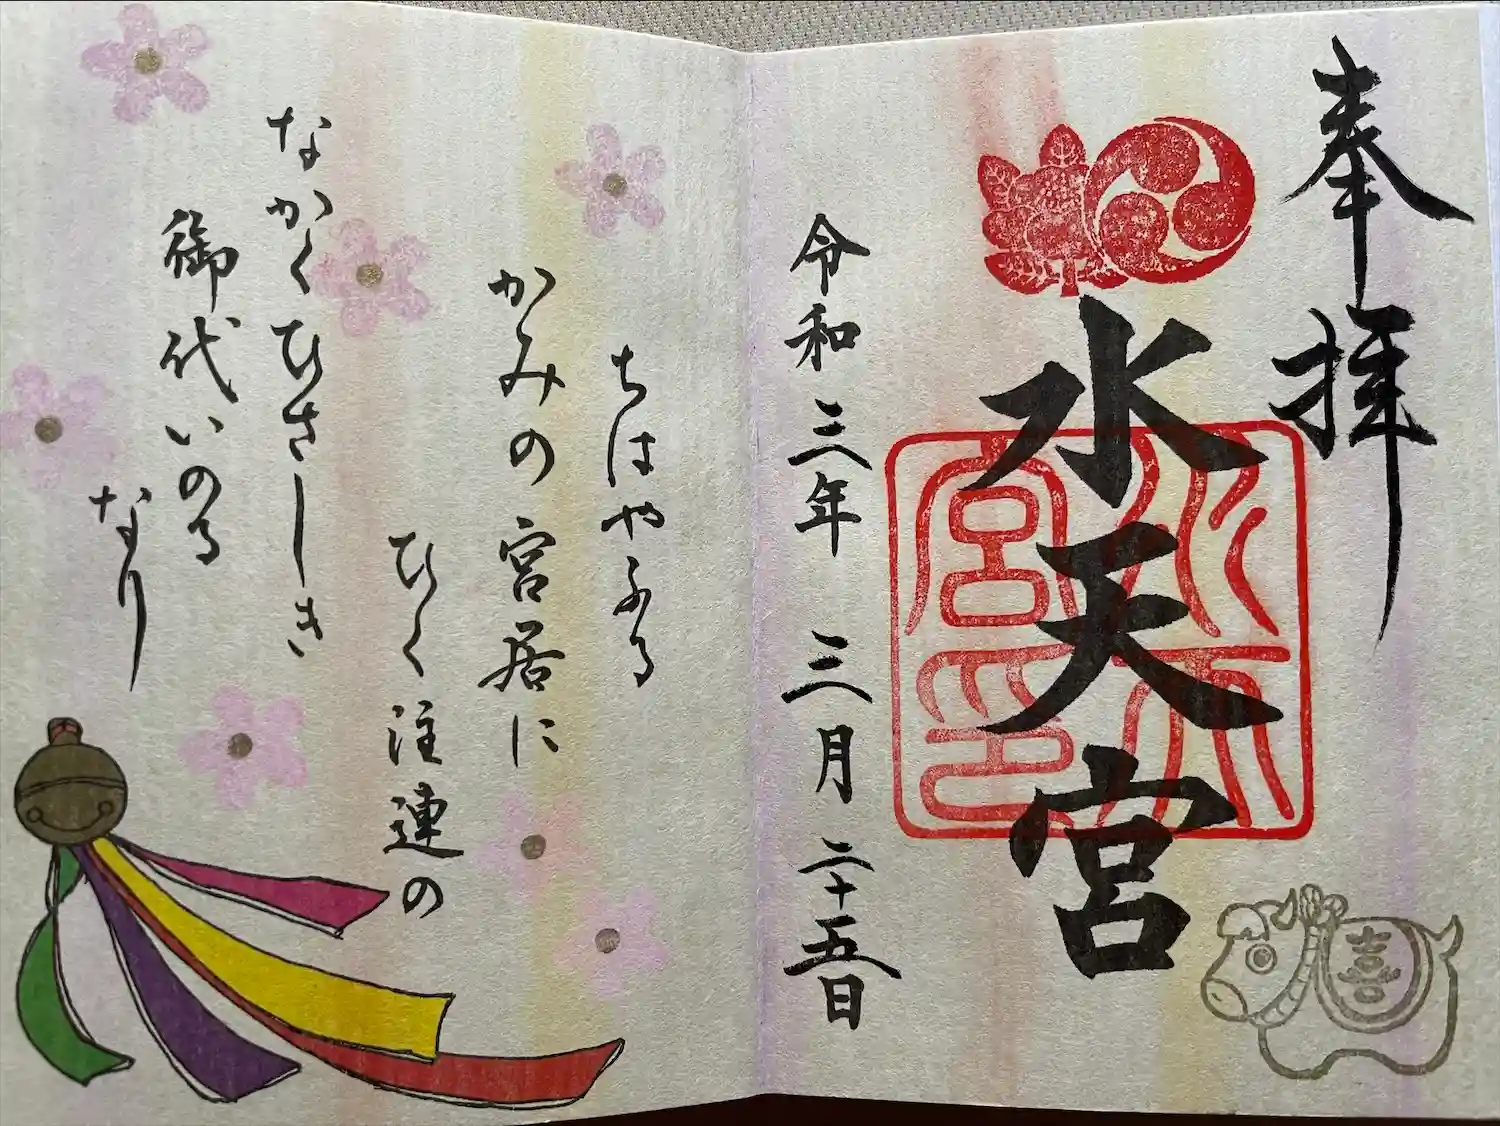 奉拝
水天宮
水天宮印
令和三年 三月 二十五日
喜
ちはやふる
かみの宮居に
ひく注連の
なかくひさしき
御代いのる
なり